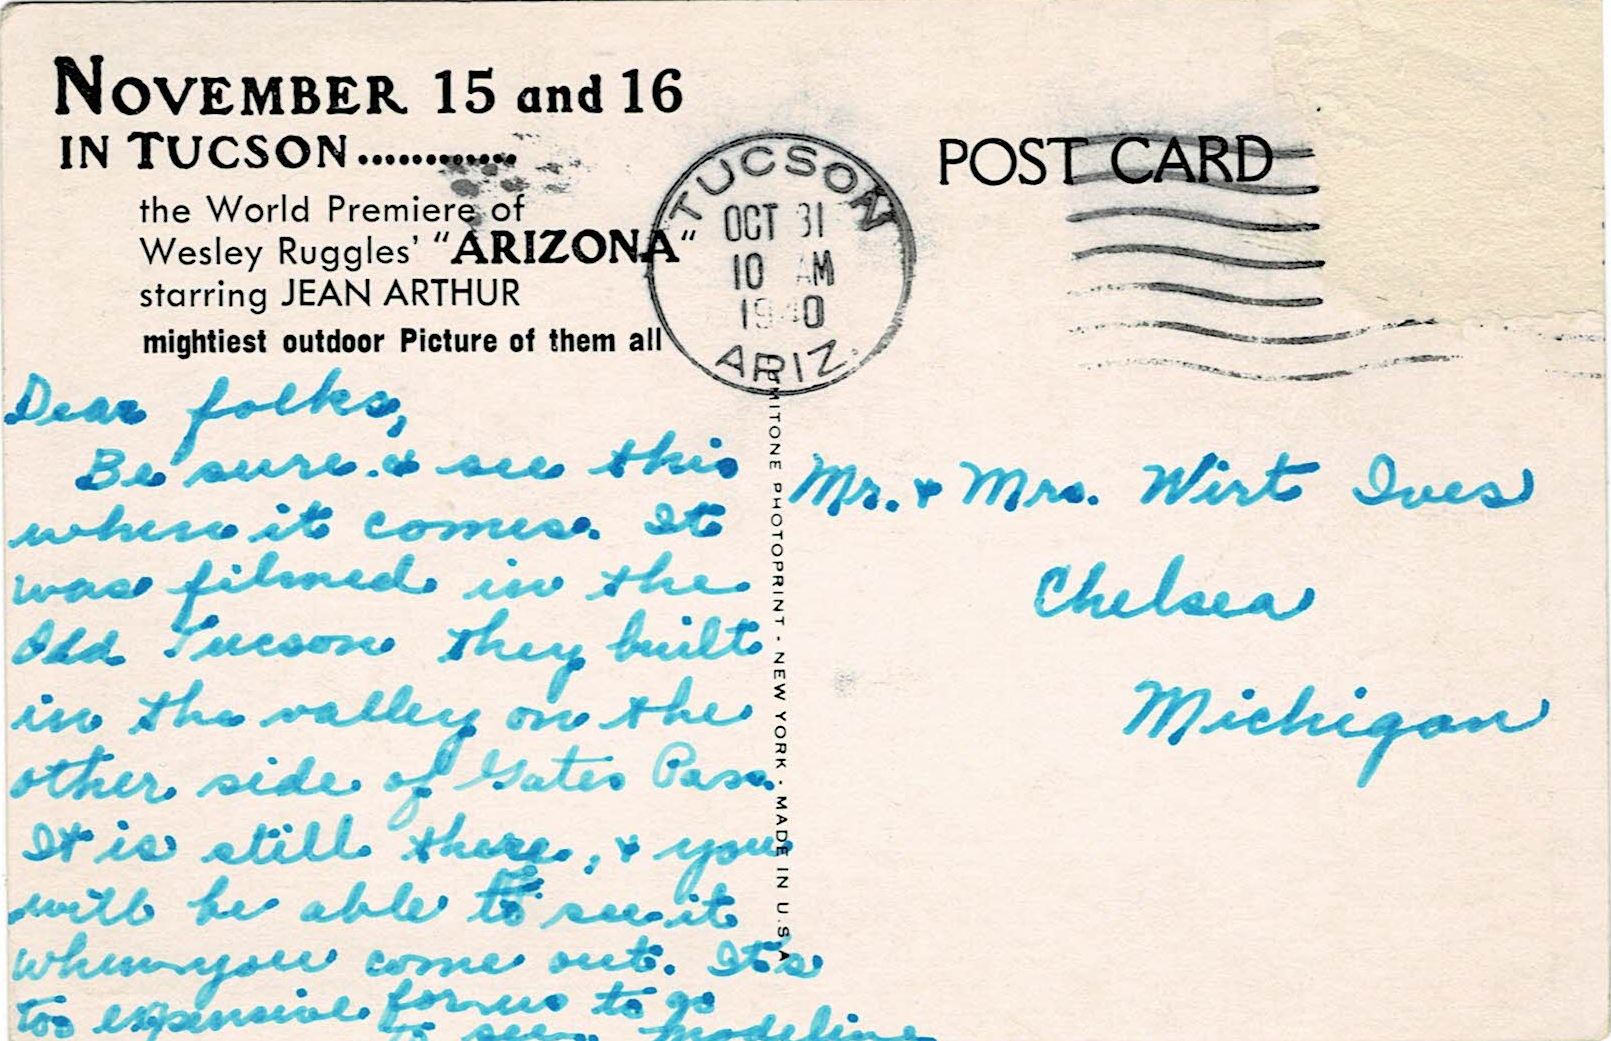 NOVEMBER 15 and 16
IN TUCSON............
the World Premiere of
Wesley Ruggles' "ARIZONA"
starring JEAN ARTHUR
mightiest outdoor Picture of them all
TUCSON
OCT 31
10 AM
1940
ARIZ.
POST CARD
Dear folks,
Be sure & see this
when it comes. It
was filmed in the
Old Tucson they built
in the valley on the
other side of Gates Pass.
It is still there, & you
will be able to see it
when you come out. It's
too expensive for us to go
to see. Madeline
MITONE PHOTOPRINT - NEW YORK - MADE IN U.S.A
Mr. & Mrs. Wirt Ives
Chelsea
Michigan